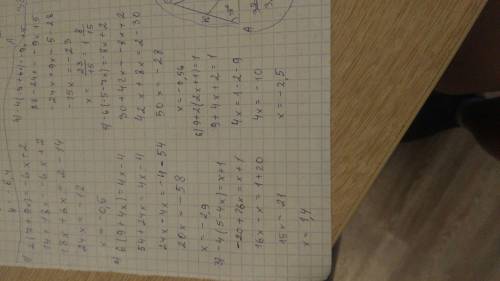 1) 2(7+9x)=-6x+2
14+18x=-6x+2
18x+6x=2-14
24x=-12
x=-0,5
2) 6(9+4x)=4x-4
54+24x=4x-4
24x-4x=-4-54
20x=-58
x=-2,9
3) -4(5-4x)=x+1
-20+16x=x+1
16x-x=1+20
15x=21
x=1,4
28-24x=-9x+5
-24x+9x=5-28
-15x=-23
x=23/15=1 8/15
5) -6(-5-7x)=-8x+2
30+42x=-8x+2
42x+8x=2-30
50x=-28
x=-0,56
6) 9+2(2x+1)=1
9+4x+2=1
4x=1-2-9
4x=-10
x=-2,5